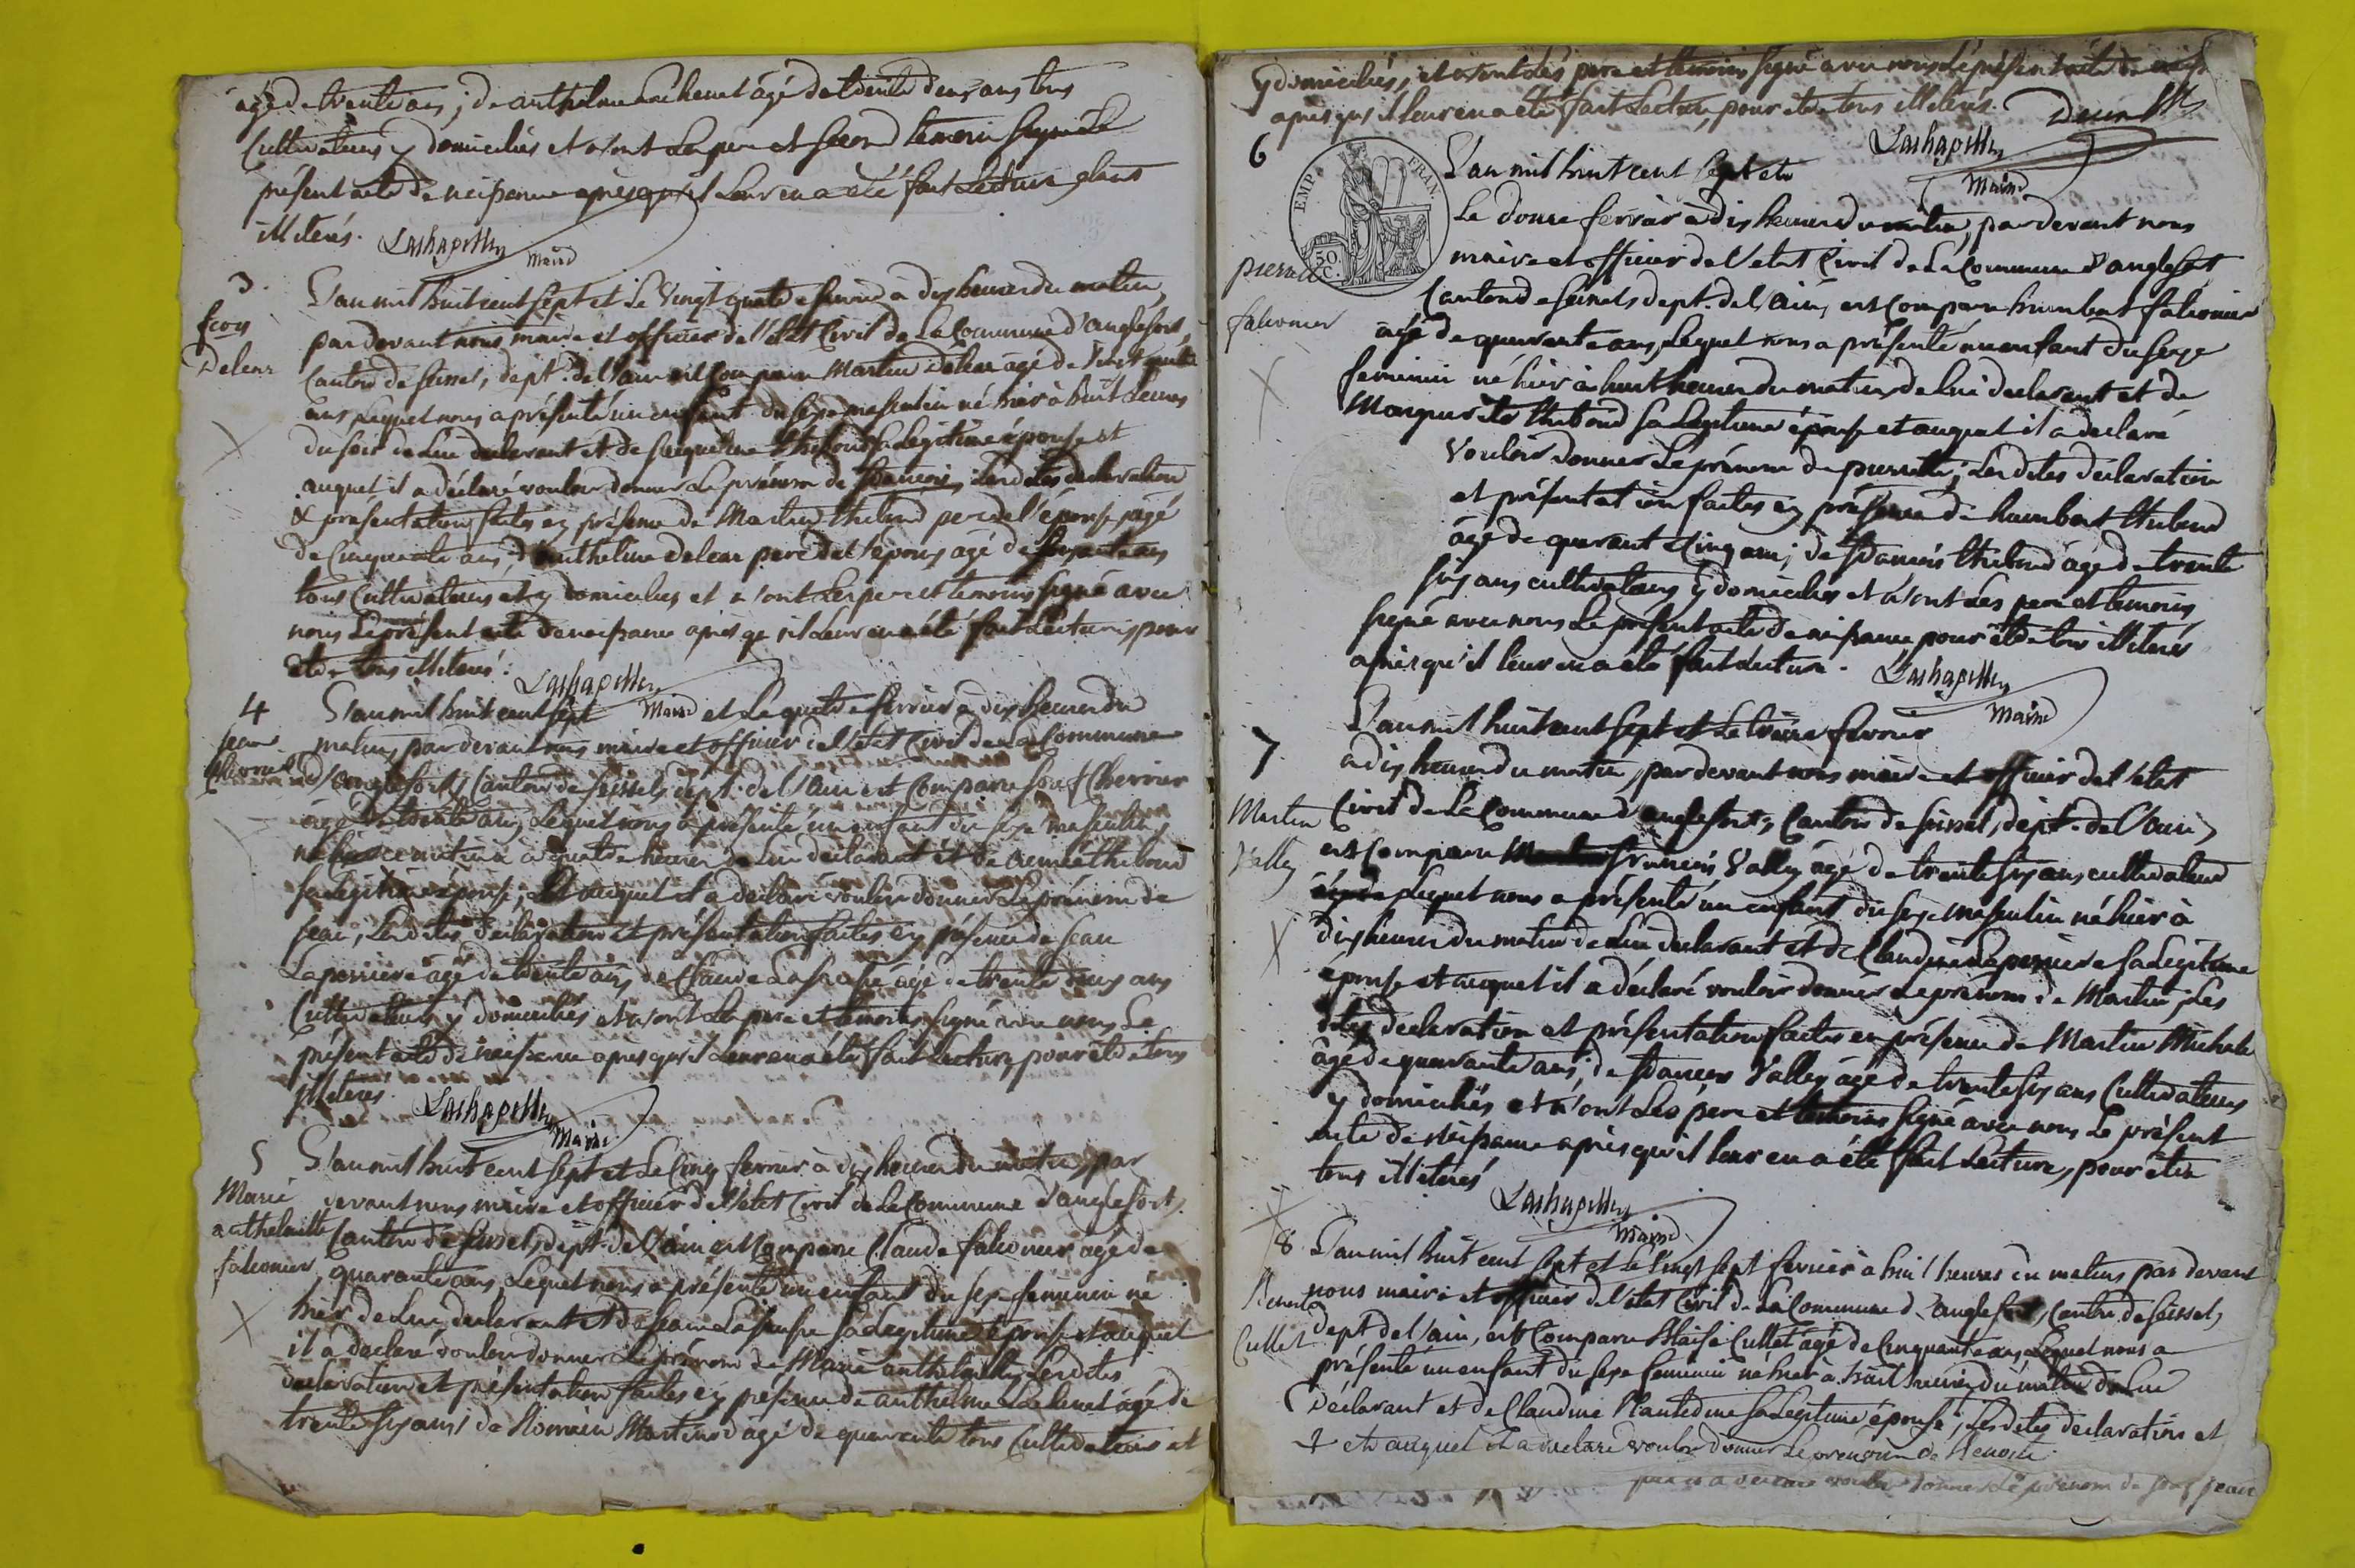 âgé de trente ans ; de anthelme Lachenet âgé de trente deux ans tous
Cultivateurs y domiciliés et n'ont Le pere et second temoin signé Le
présent acte de naissance après qu'il Leur en a été fait Lecture étant
illiterés. Lachapelle
Maire
3.
L'an mil huit cent sept et Le Vingt quatre à dix heures du matin,
fçois
Delear
par devant nous maire et officier de l'état Civil de La Commune d'anglefort,
Canton de seissel, dept. de l'ain est Comparu Martin Delear âgé de
ans Lequel nous a présenté un enfant du sexe masculin né hier à huit heures
du soir de Lui declarant et de Jacqueline thiboud sa Legitime épouse et
auquel il a déclaré vouloir donner Le prénom de francois, Lesdites declaration
& presentation faites en présence de Martin thiboud pere de l'épouse, âgé
de Cinquante ans, d'anthelme delear pere de l'époux âgé de soixante ans
tous Cultivateurs et y domiciliés et n'ont Les pere et temoins signé avec
nous Le présent acte de naissance après qu'il Leur en a été fait Lecture, pour
etre tous illiterés. Lachapelle
Maire
4
L'an mil huit cent sept et Le quatre fevrier à dix heures du
Jean
Cherrier
matin, par devant nous maire et officier de l'etat Civil de La Commune
d'anglefort, Canton de seissel, dept. de l'ain est Comparu Cherrier
âgé de trente ans, Lequel nous a présenté un enfant du sexe masculin,
né ce matin à quatre heures de Lui declarant et de aimée thiboud
sa Legitime épouse, et auquel il a declaré vouloir donner Le prénom de
Jean, Lesdites declaration et présentation faites en présence de Jean
Laperriere âgé de trente ans, de Claude âgé de trente ans
Cultivateurs y domiciliés et n'ont Le pere et temoins signé avec nous Le
présent acte de naissance après qu'il Leur en a été fait Lecture, pour etre tous
illiterés. Lachapelle
Maire
5
L'an mil huit cent sept et Le Cinq fevrier à dix heures du matin, par
Marie
anthelmette
falconier
devant nous maire et officier de l'etat Civil de La Commune d'anglefort,
Canton de seissel, dept. de l'ain est Comparu Claude falconier âgé de
quarante ans, Lequel nous a présenté un enfant du sexe feminin né
hier de Lui declarant et de sa Legitime épouse et auquel
il a declaré vouloir donner Le prénom de Marie anthelmette, Lesdites
declaration et présentation faites en présence de anthelme Lachenet âgé de
trente six ans ; de Romain Martinod âgé de quarante tous Cultivateurs et
y domiciliés, et n'ont Les pere et temoins signé avec nous Le présent acte de
après qu'il Leur en a été fait Lecture, pour etre tous illiterés.
Lachapelle
Maire
6
L'an mil huit cent sept et
EMP. FRAN.
50. C.
pierrette
falconier
Le douze fevrier à dix heures du matin, par devant nous
maire et officier de l'etat Civil de La Commune d'anglefort
Canton de seissel, dept. de l'ain, est Comparu humbert falconier
âgé de quarante ans, Lequel nous a présenté un enfant du sexe
feminin né hier à huit heures du matin de Lui declarant et de
Marguerite thiboud sa Legitime épouse et auquel il a declaré
vouloir donner Le prénom de pierrette ; Lesdites declaration
et présentation faites en présence de humbert thiboud
âgé de quarant Cinq ans ; de francois thiboud âgé de trente
six ans cultivateurs y domiciliés et n'ont Les pere et temoins
signé avec nous Le présent acte de naissance pour etre tous illiterés
après qu'il leur en a été fait Lecture. Lachapelle
Maire
7.
L'an mil huit cent sept et Le treize fevrier
à dix heures du matin, par devant nous maire et officier de l'état
Martin
Vallez
Civil de La Commune d'anglefort, Canton de seissel, dept. de l'ain,
est Comparu francois Vallez âgé de trente six ans, cultivateur
Lequel nous a présenté un enfant du sexe masculin né hier à
dix heures du matin de Lui declarant et de Claudine Laperriere sa Legitime
épouse et auquel il a déclaré vouloir donner Le prénom de Martin, Les
dites declaration et présentation faites en présence de Martin Michele
âgé de quarante ans, de francois Vallez âgé de trente six ans Cultivateurs
y domiciliés et n'ont Les pere et temoins signé avec nous Le présent
acte de naissance après qu'il leur en a été fait Lecture, pour être
tous illiterés Lachapelle
Maire
8.
L'an mil huit cent sept et Le vingt sept fevrier à huit heures du matin par devant
Benoite
Cullet
nous maire et officier de l'etat Civil de La Commune d'anglefort, Canton de seissel,
dept. de l'ain, est Comparu Blaise Cullet âgé de Cinquante ans, Lequel nous a
présenté un enfant du sexe feminin né hier à huit heures du matin de Lui
Declarant et de Claudine sa Legitime épouse ; Lesdites declaration et
et auquel il a declaré vouloir donner Le prénom de Benoite
declaré vouloir donner Le prénom de Jean